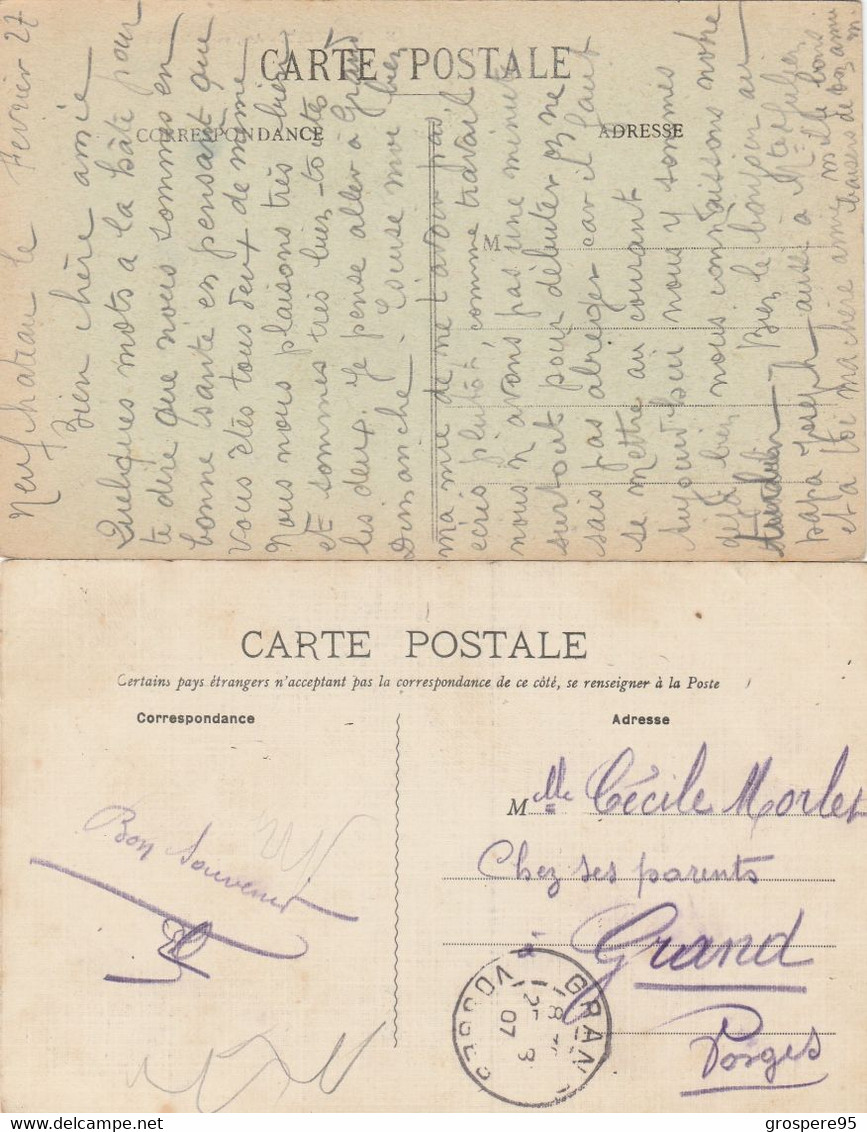 CARTE POSTALE
CORRESPONDANCE
ADRESSE
M
Neufchateau le Fevrier 27
Bien chère amie
Quelques mots a la hâte pour
te dire que nous sommes en
bonne santé en pensant que
vous êtes tous deux de même
Nous nous plaisons très bien
et sommes très bien toutes
les deux. Je pense aller à Grand
Dimanche. Excuse moi bien
ma mie de ne t'avoir pas
écris plutôt, comme travail
nous n'avons pas une minute
surtout pour débuter on ne
sais pas abreger car il faut
se mettre au courant
aujourd'hui nous y sommes
déjà bien nous connaissons notre
Bien le bonjour au
papa Joseph aussi a
et a toi ma chère amie mille bons
baisers de ton amie
M.
CARTE POSTALE
Certains pays étrangers n'acceptant pas la correspondance de ce côté, se renseigner à la Poste
Correspondance
Adresse
Bon Souvenir
Mlle Cécile Morlet
Chez ses parents
à Grand
Vosges
GRAND
8
25 3
07
VOSGES
grospere95